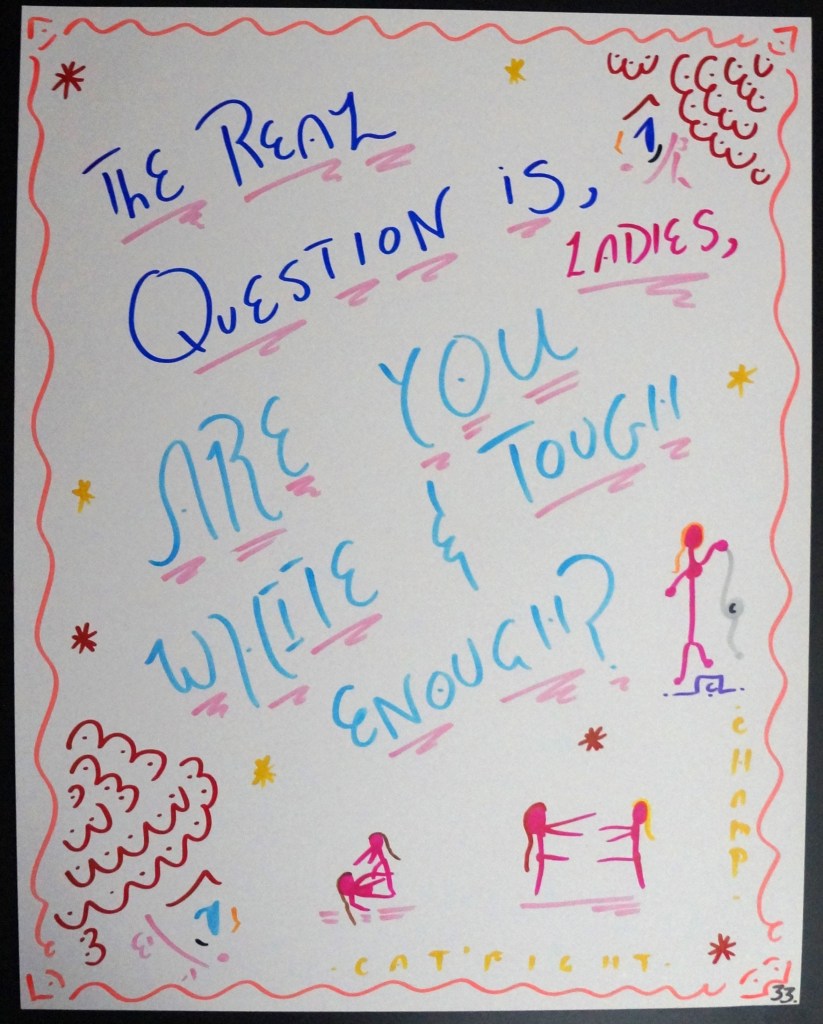 THE REAL
QUESTION IS,
LADIES,
ARE YOU
WHITE & TOUGH
ENOUGH?
CHAMP.
CAT'FIGHT.
33.